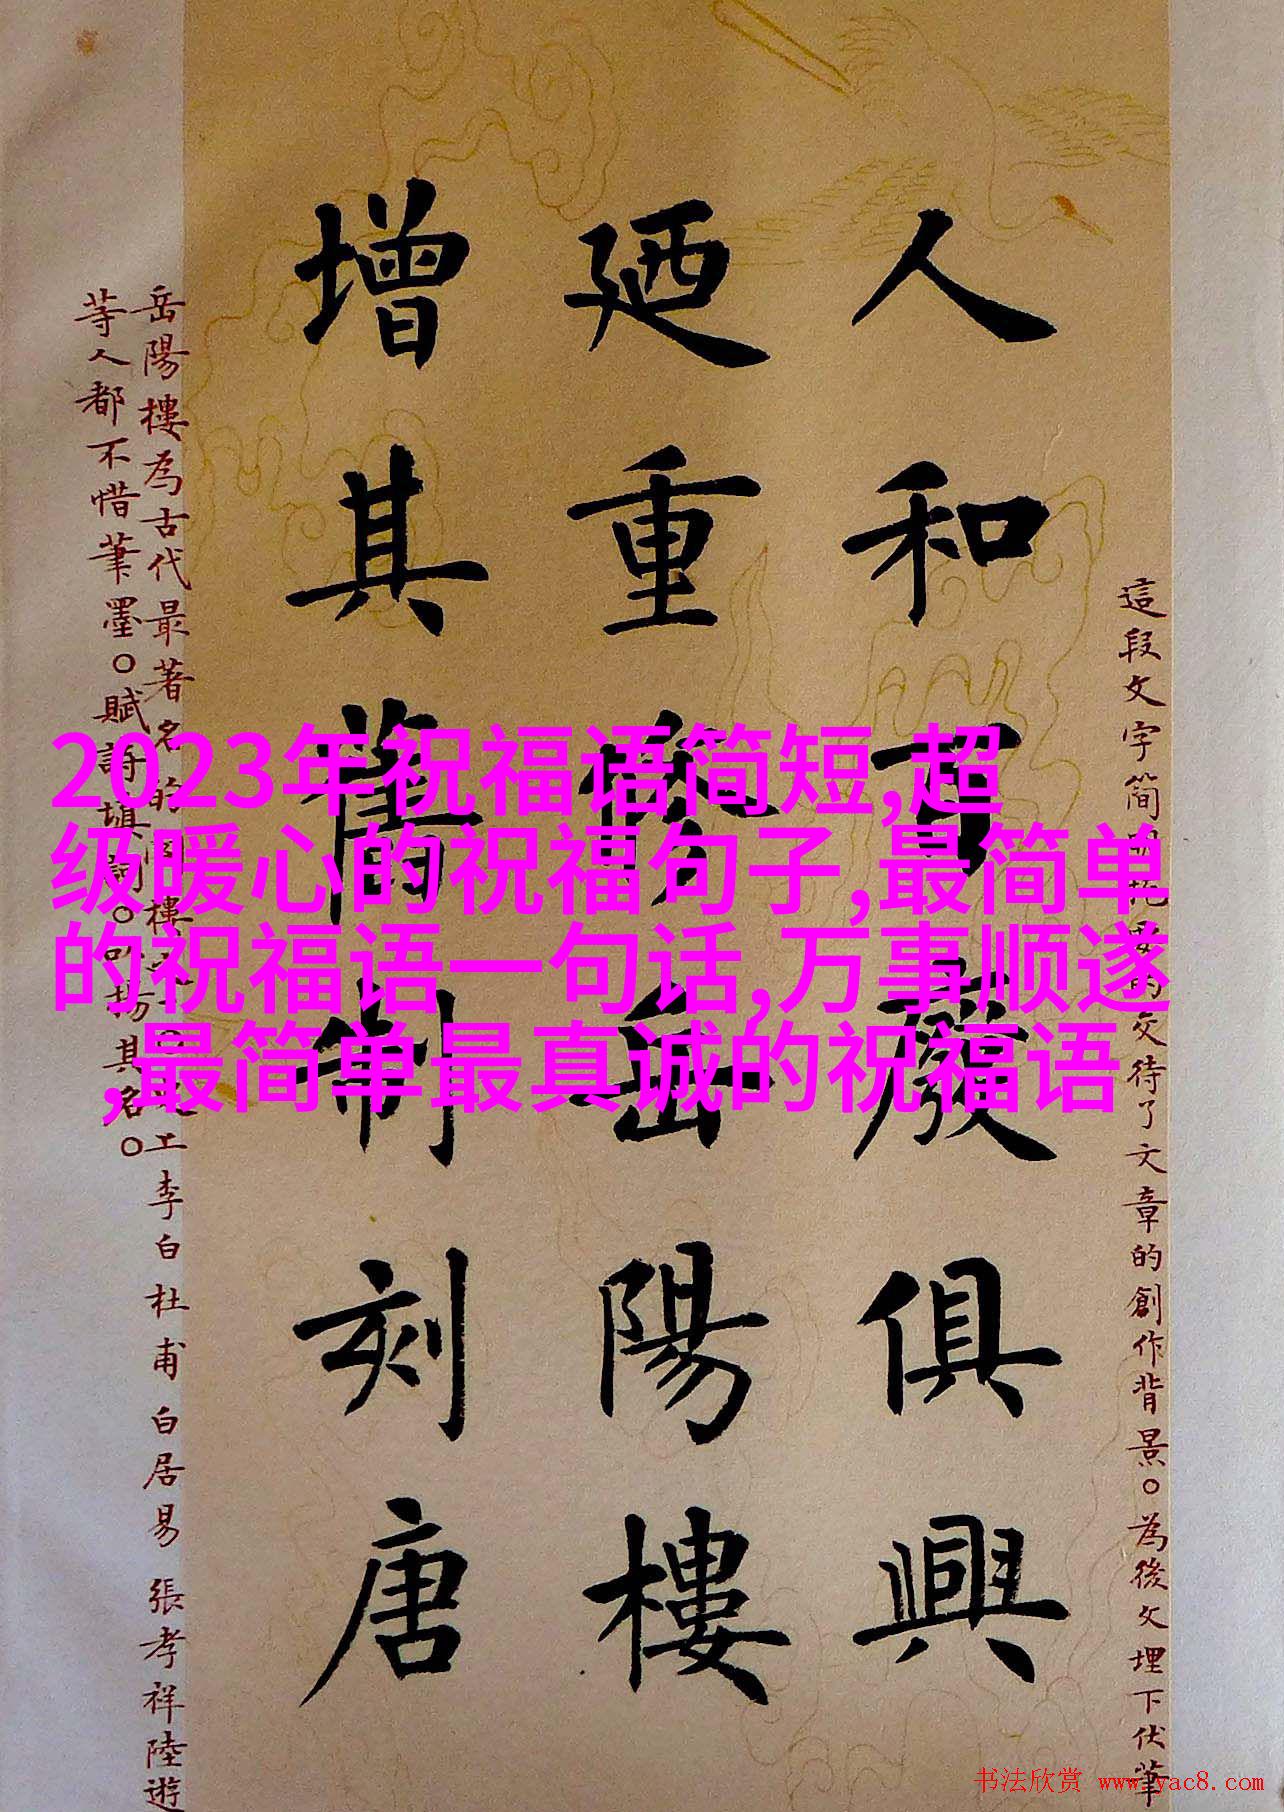 2023年祝福语简短,超
级暖心的祝福句子,最简单
的祝福语一句话,万事顺遂
,最简单最真诚的祝福语
這段文字簡明扼要的交待了文章的創作背景。為後文埋下伏筆
人和百廢俱興
廼重岳陽樓
增其舊制刻唐
岳陽樓為古代最著名的樓李白杜甫白居易張孝祥陸遊
等人都不惜筆墨。賦詩填詞。其名。
书法欣赏 www.yac8.com